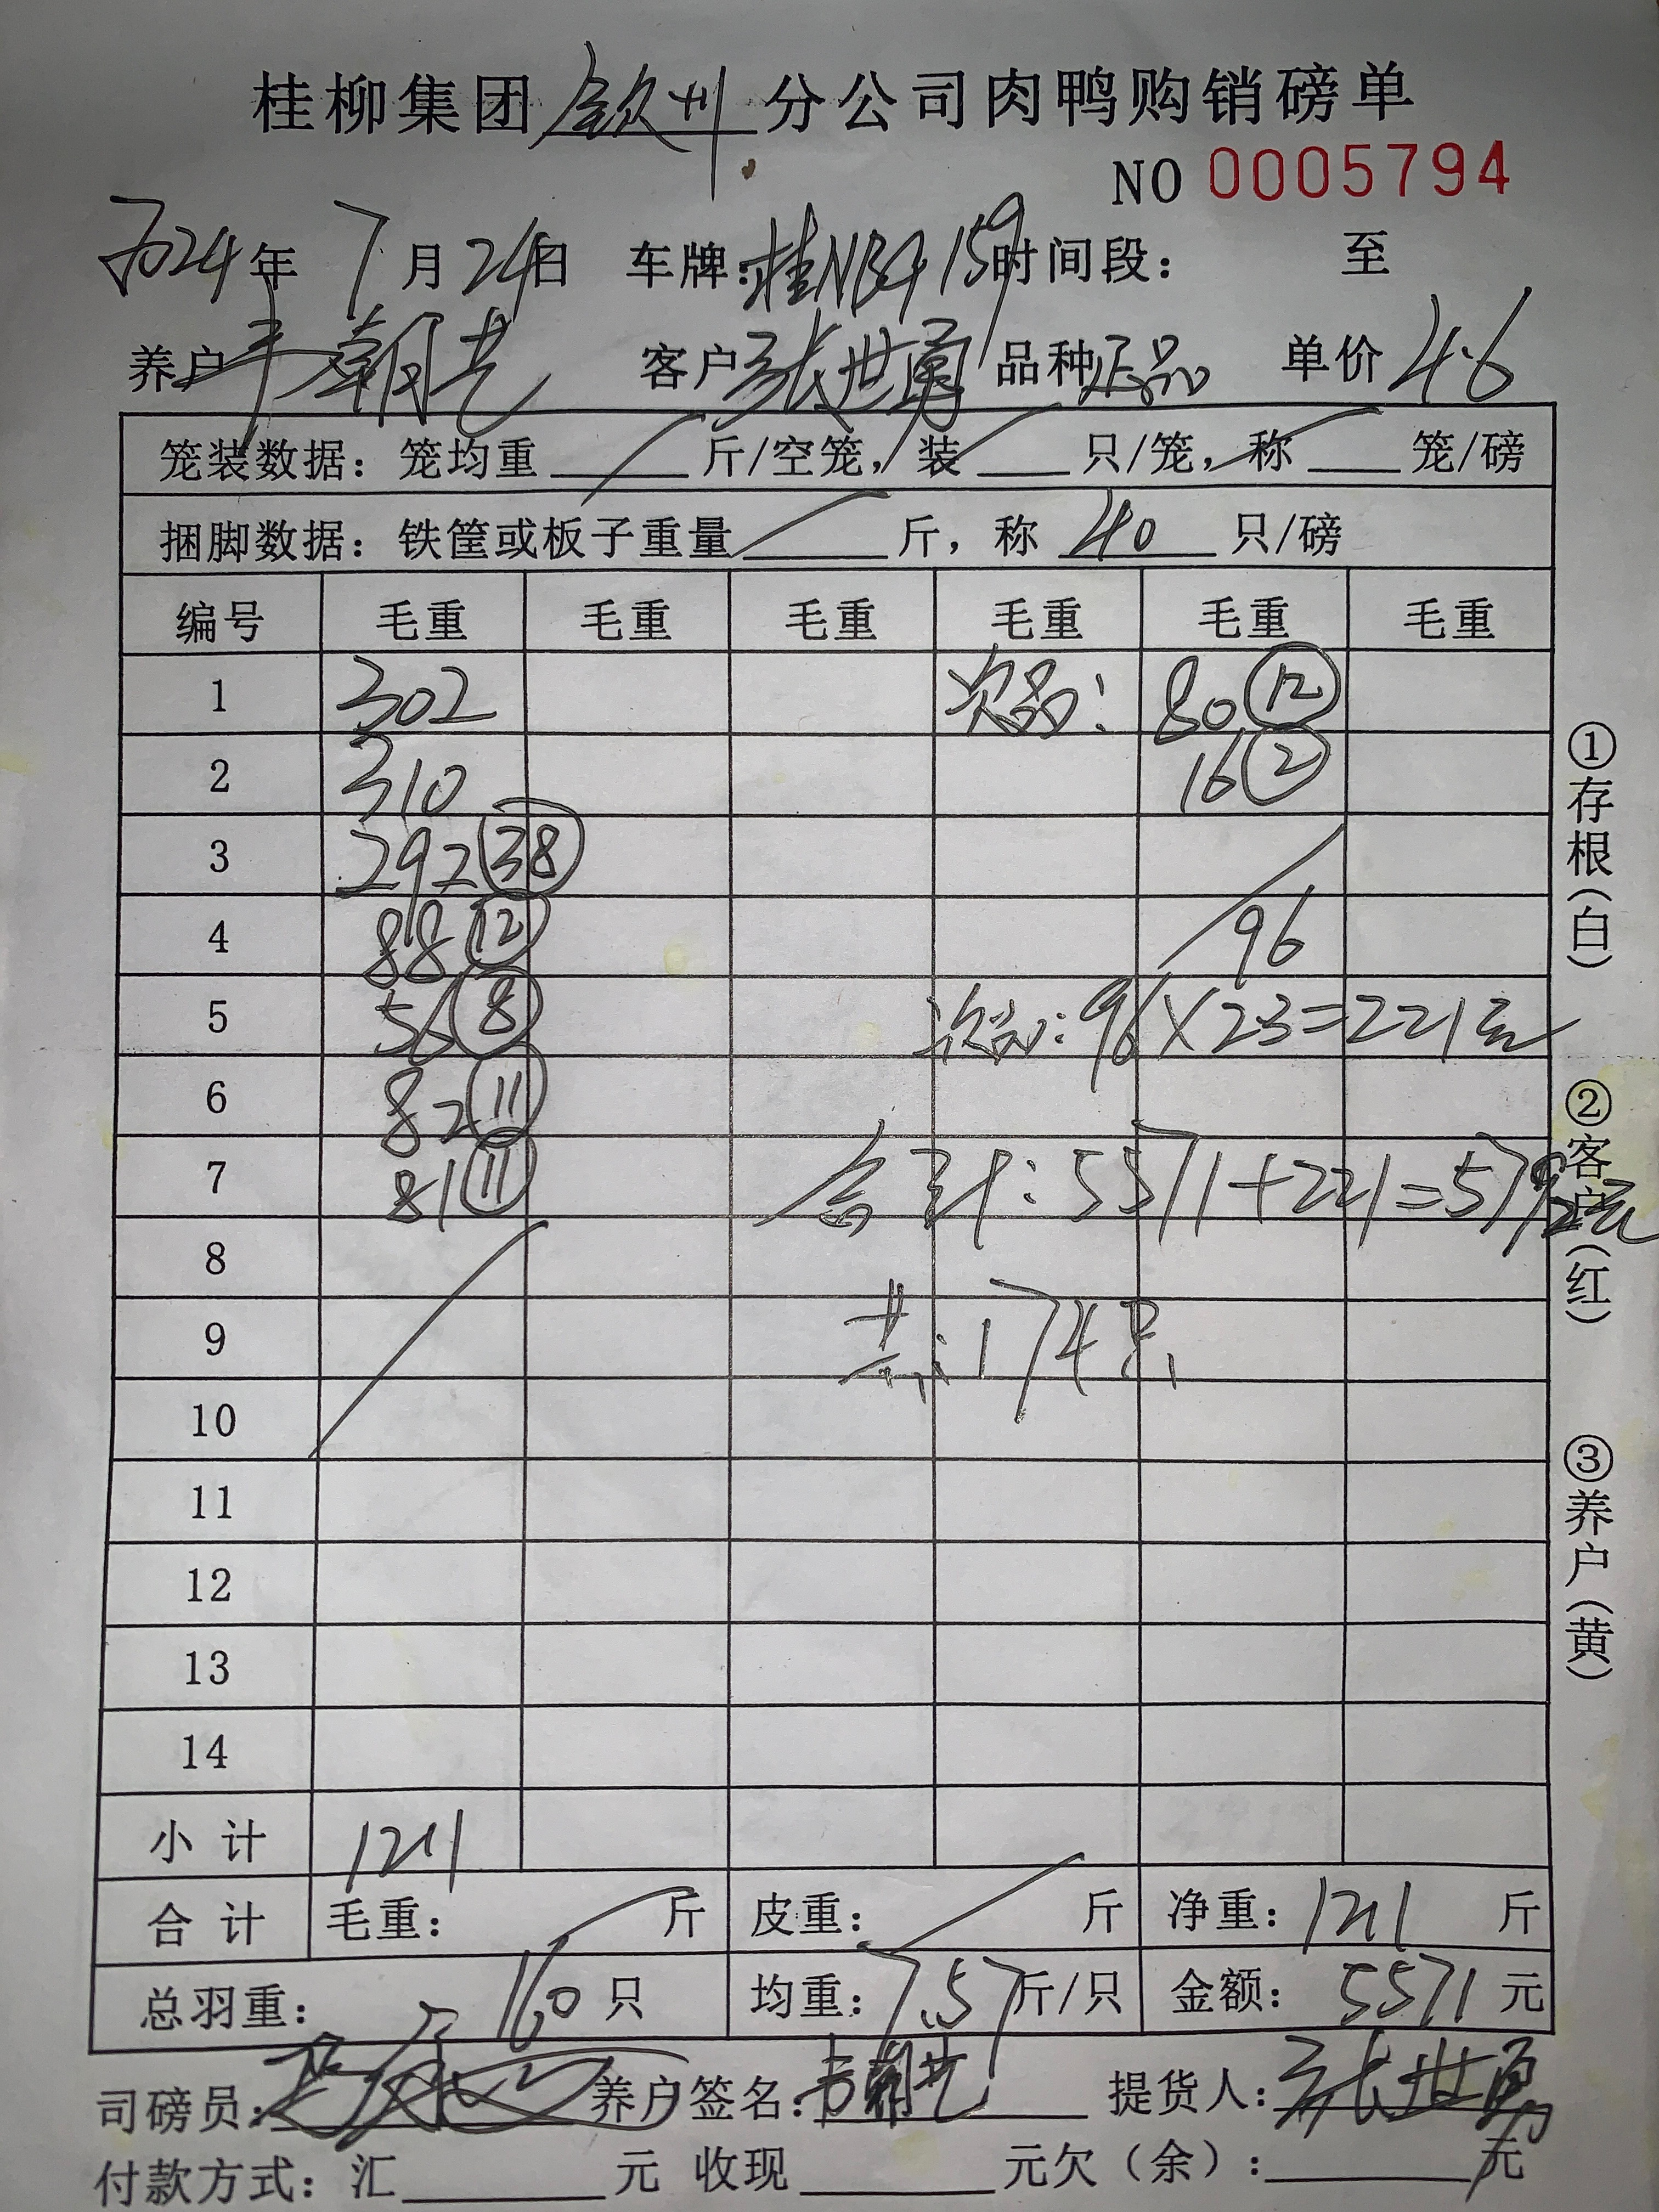 桂柳集团钦州分公司肉鸭购销磅单
NO 0005794
2024年7月24日 车牌:桂NB4159 时间段: 至
养户 韦朝艺 客户 张世勇 品种 正品 单价 4.6
笼装数据: 笼均重 斤/空笼, 装 只/笼, 称 笼/磅
捆脚数据: 铁筐或板子重量 斤, 称 40 只/磅
编号 毛重 毛重 毛重 毛重 毛重 毛重
1 302 次品: 80 ⑫
2 310 16 ②
3 292 ㊳
4 88 ⑫ 96
5 56 ⑧ 次品: 96×23=221元
6 82 ⑪
7 81 ⑪ 合计: 5571+221=5792元
8
9 共: 174只
10
11
12
13
14
小计 1211
合计 毛重: 斤 皮重: 斤 净重: 1211 斤
总羽重: 160 只 均重: 7.57 斤/只 金额: 5571 元
司磅员: 养户签名: 韦朝艺 提货人: 张世勇
付款方式: 汇 元 收现 元欠(余): 元
①存根(白)
②客户(红)
③养户(黄)